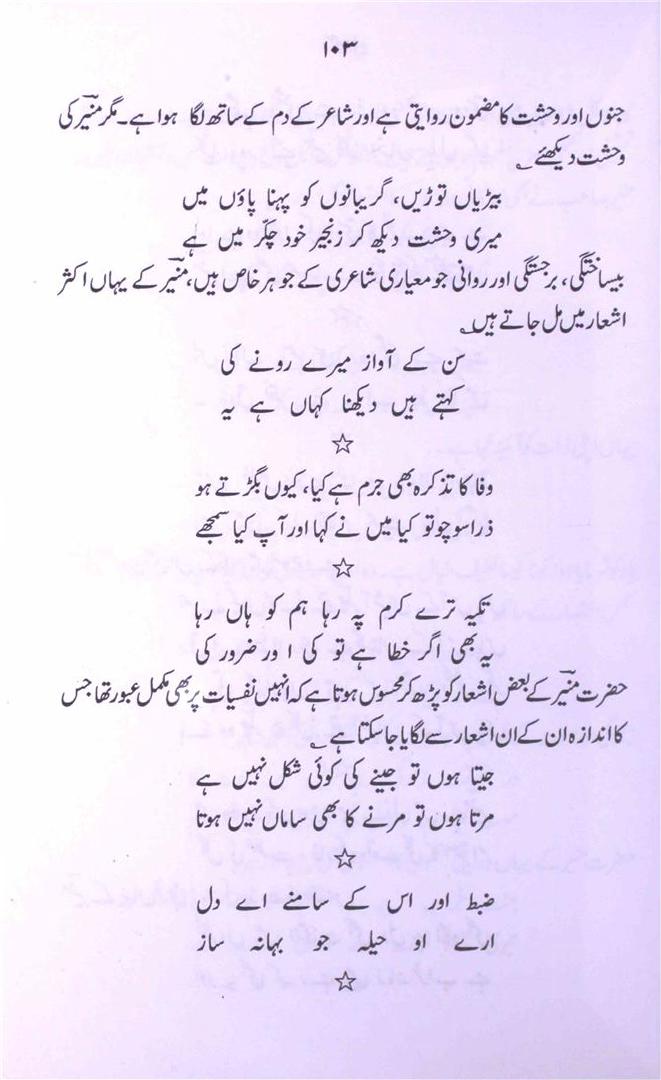 ۱۰۳
جنوں اور وحشت کا مضمون روایتی ہے اور شاعر کے دم کے ساتھ لگا ہوا ہے۔ مگر منیرؔ کی
وحشت دیکھئے ؂
بیڑیاں توڑیں، گریبانوں کو پہنا پاؤں میں
میری وحشت دیکھ کر زنجیر خود چکّر میں ہے
بیساختگی، برجستگی اور روانی جو معیاری شاعری کے جوہر خاص ہیں، منیرؔ کے یہاں اکثر
اشعار میں مل جاتے ہیں ؂
سن کے آواز میرے رونے کی
کہتے ہیں دیکھنا کہاں ہے یہ
☆
وفا کا تذکرہ بھی جرم ہے کیا، کیوں بگڑتے ہو
ذرا سوچو تو کیا میں نے کہا اور آپ کیا سمجھے
☆
تکیہ ترے کرم پہ رہا ہم کو ہاں رہا
یہ بھی اگر خطا ہے تو کی اور ضرور کی
حضرت منیرؔ کے بعض اشعار کو پڑھ کر محسوس ہوتا ہے کہ انہیں نفسیات پر بھی مکمل عبور تھا جس
کا اندازہ ان کے ان اشعار سے لگایا جا سکتا ہے ؂
جیتا ہوں تو جینے کی کوئی شکل نہیں ہے
مرتا ہوں تو مرنے کا بھی ساماں نہیں ہوتا
☆
ضبط اور اس کے سامنے اے دل
ارے او حیلہ جو بہانہ ساز
☆